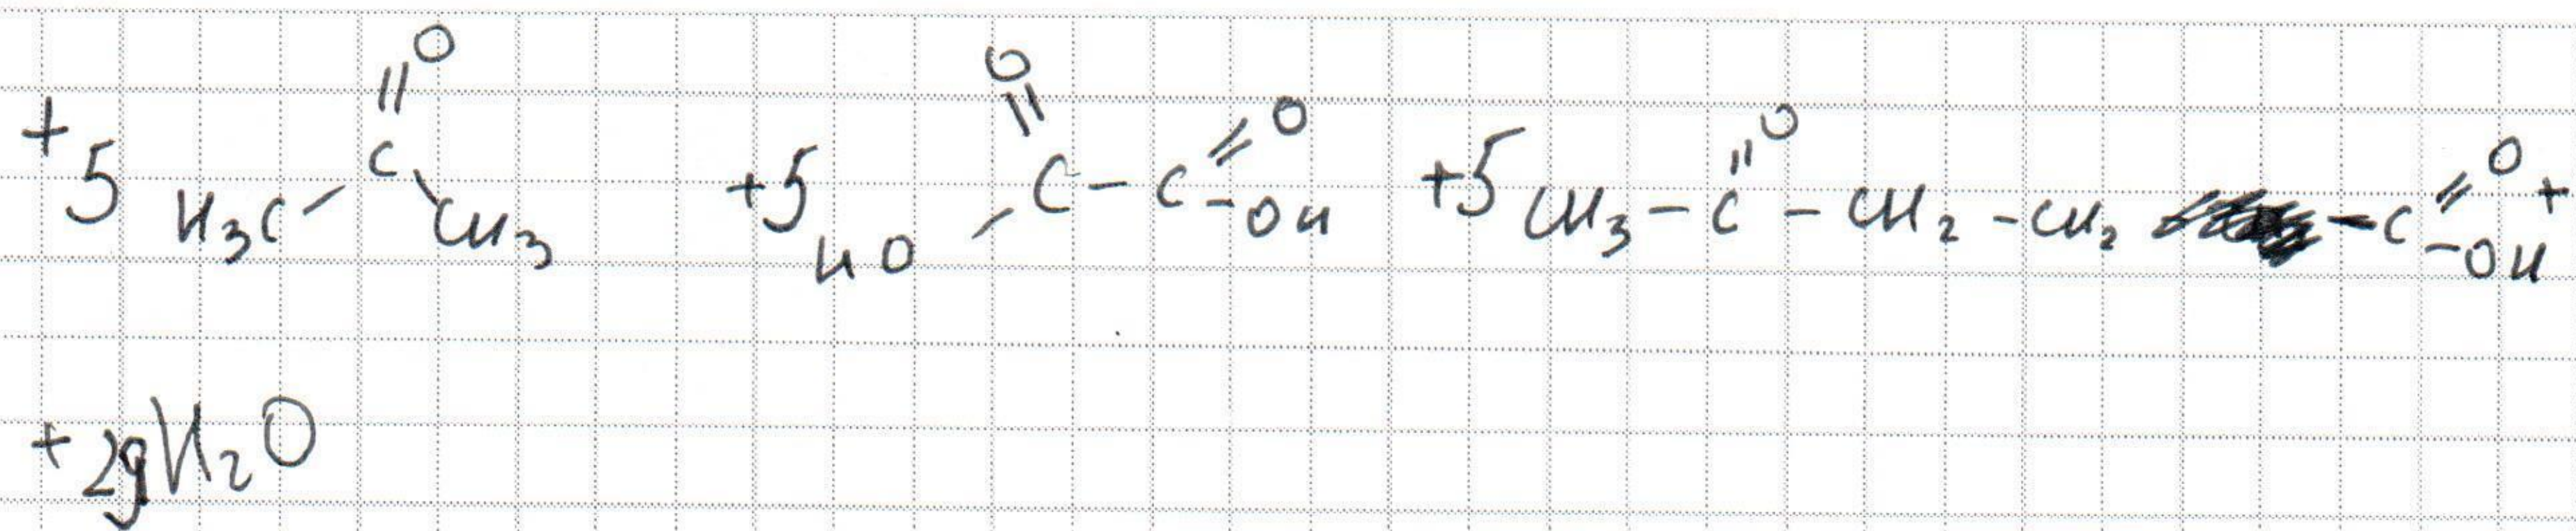 +5 H₃C-C(=O)-CH₃ +5 HO-C(=O)-C(=O)-OH +5 CH₃-C(=O)-CH₂-CH₂-C(=O)-OH +
+29H₂O